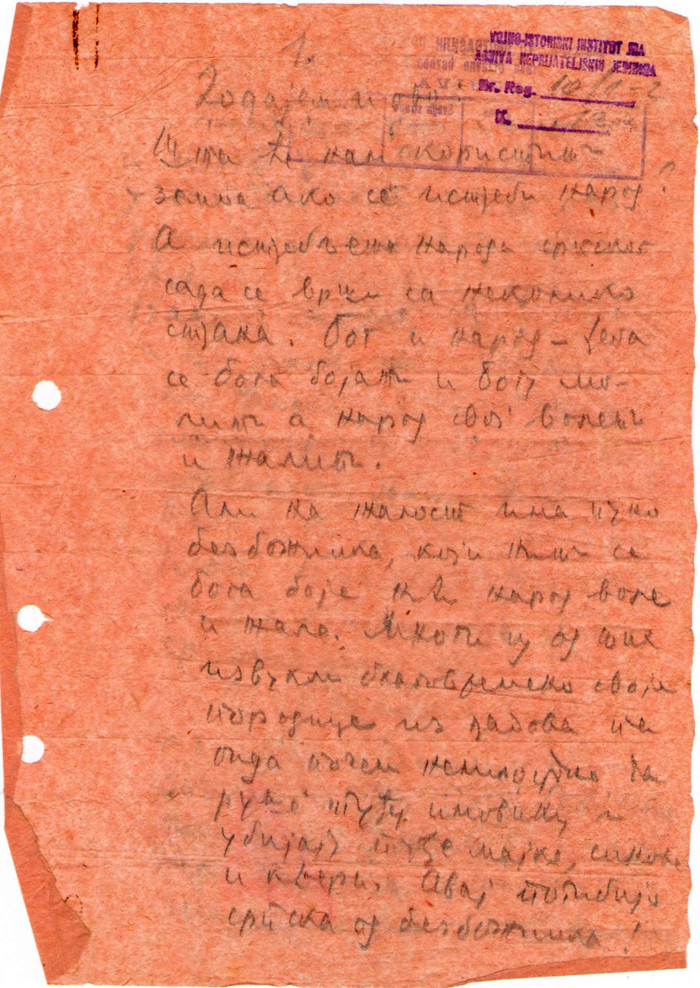 VOJNO-ISTORISKI INSTITUT JNA
ARHIVA NEPRIJATELJSKIH JEDINICA
Br. Reg.
K.
1.
Додајем и ово
Шта ће нам користити
земља ако се истреби народ?
А истребљење народа српског
сада се врши са неколико
страна. Бог и народ – треба
се бога бојати и богу мо-
лити а народ свој волети
и жалити.
Али на жалост има пуно
безбожника, који нити се
бога боје нити народ воле
и жале. Многи су од њих
извукли благовремено своје
породице из градова па
онда почели немилосрдно да
руше туђу имовину и
убијају туђе мајке, синове
и кћери. Авај погибијо
српска од безбожника!